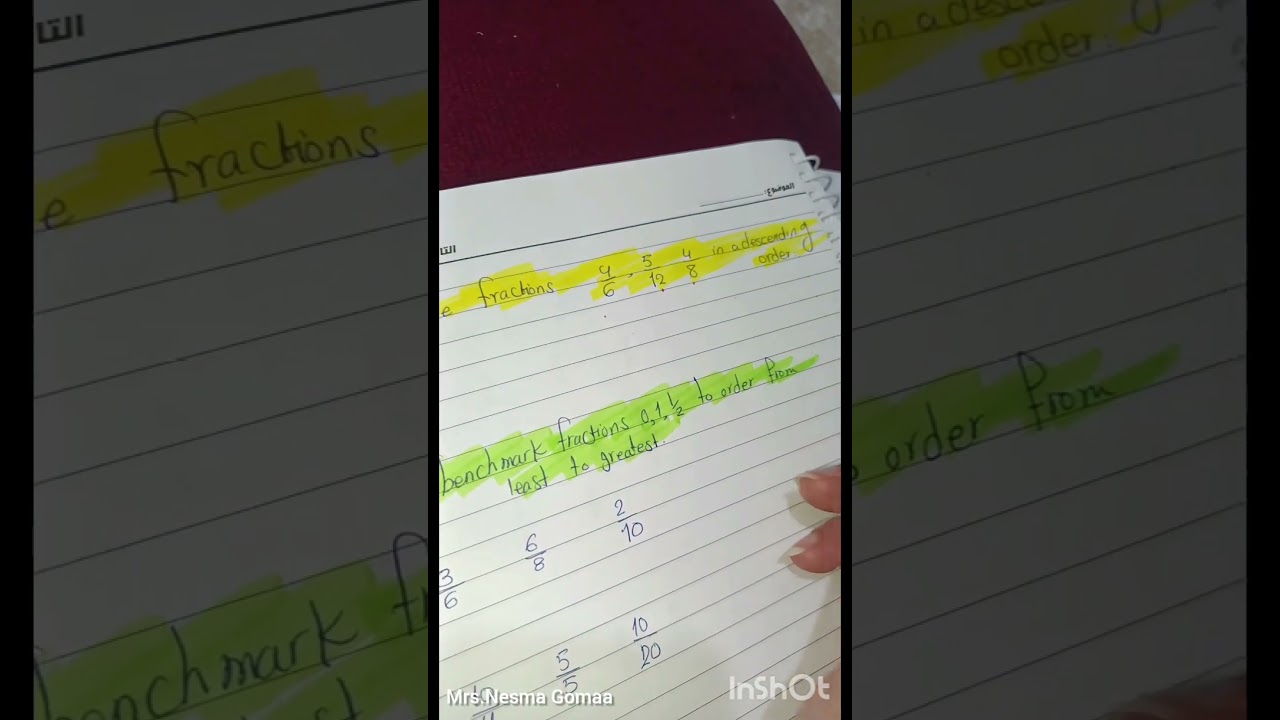 التا
الموضوع:
e fractions 4/6, 5/12 4/8 in a descending
order.
benchmark fractions 0, 1, 1/2 to order from
least to greatest.
3/6 6/8 2/10
5/5 10/20
Mrs.Nesma Gomaa
InShOt